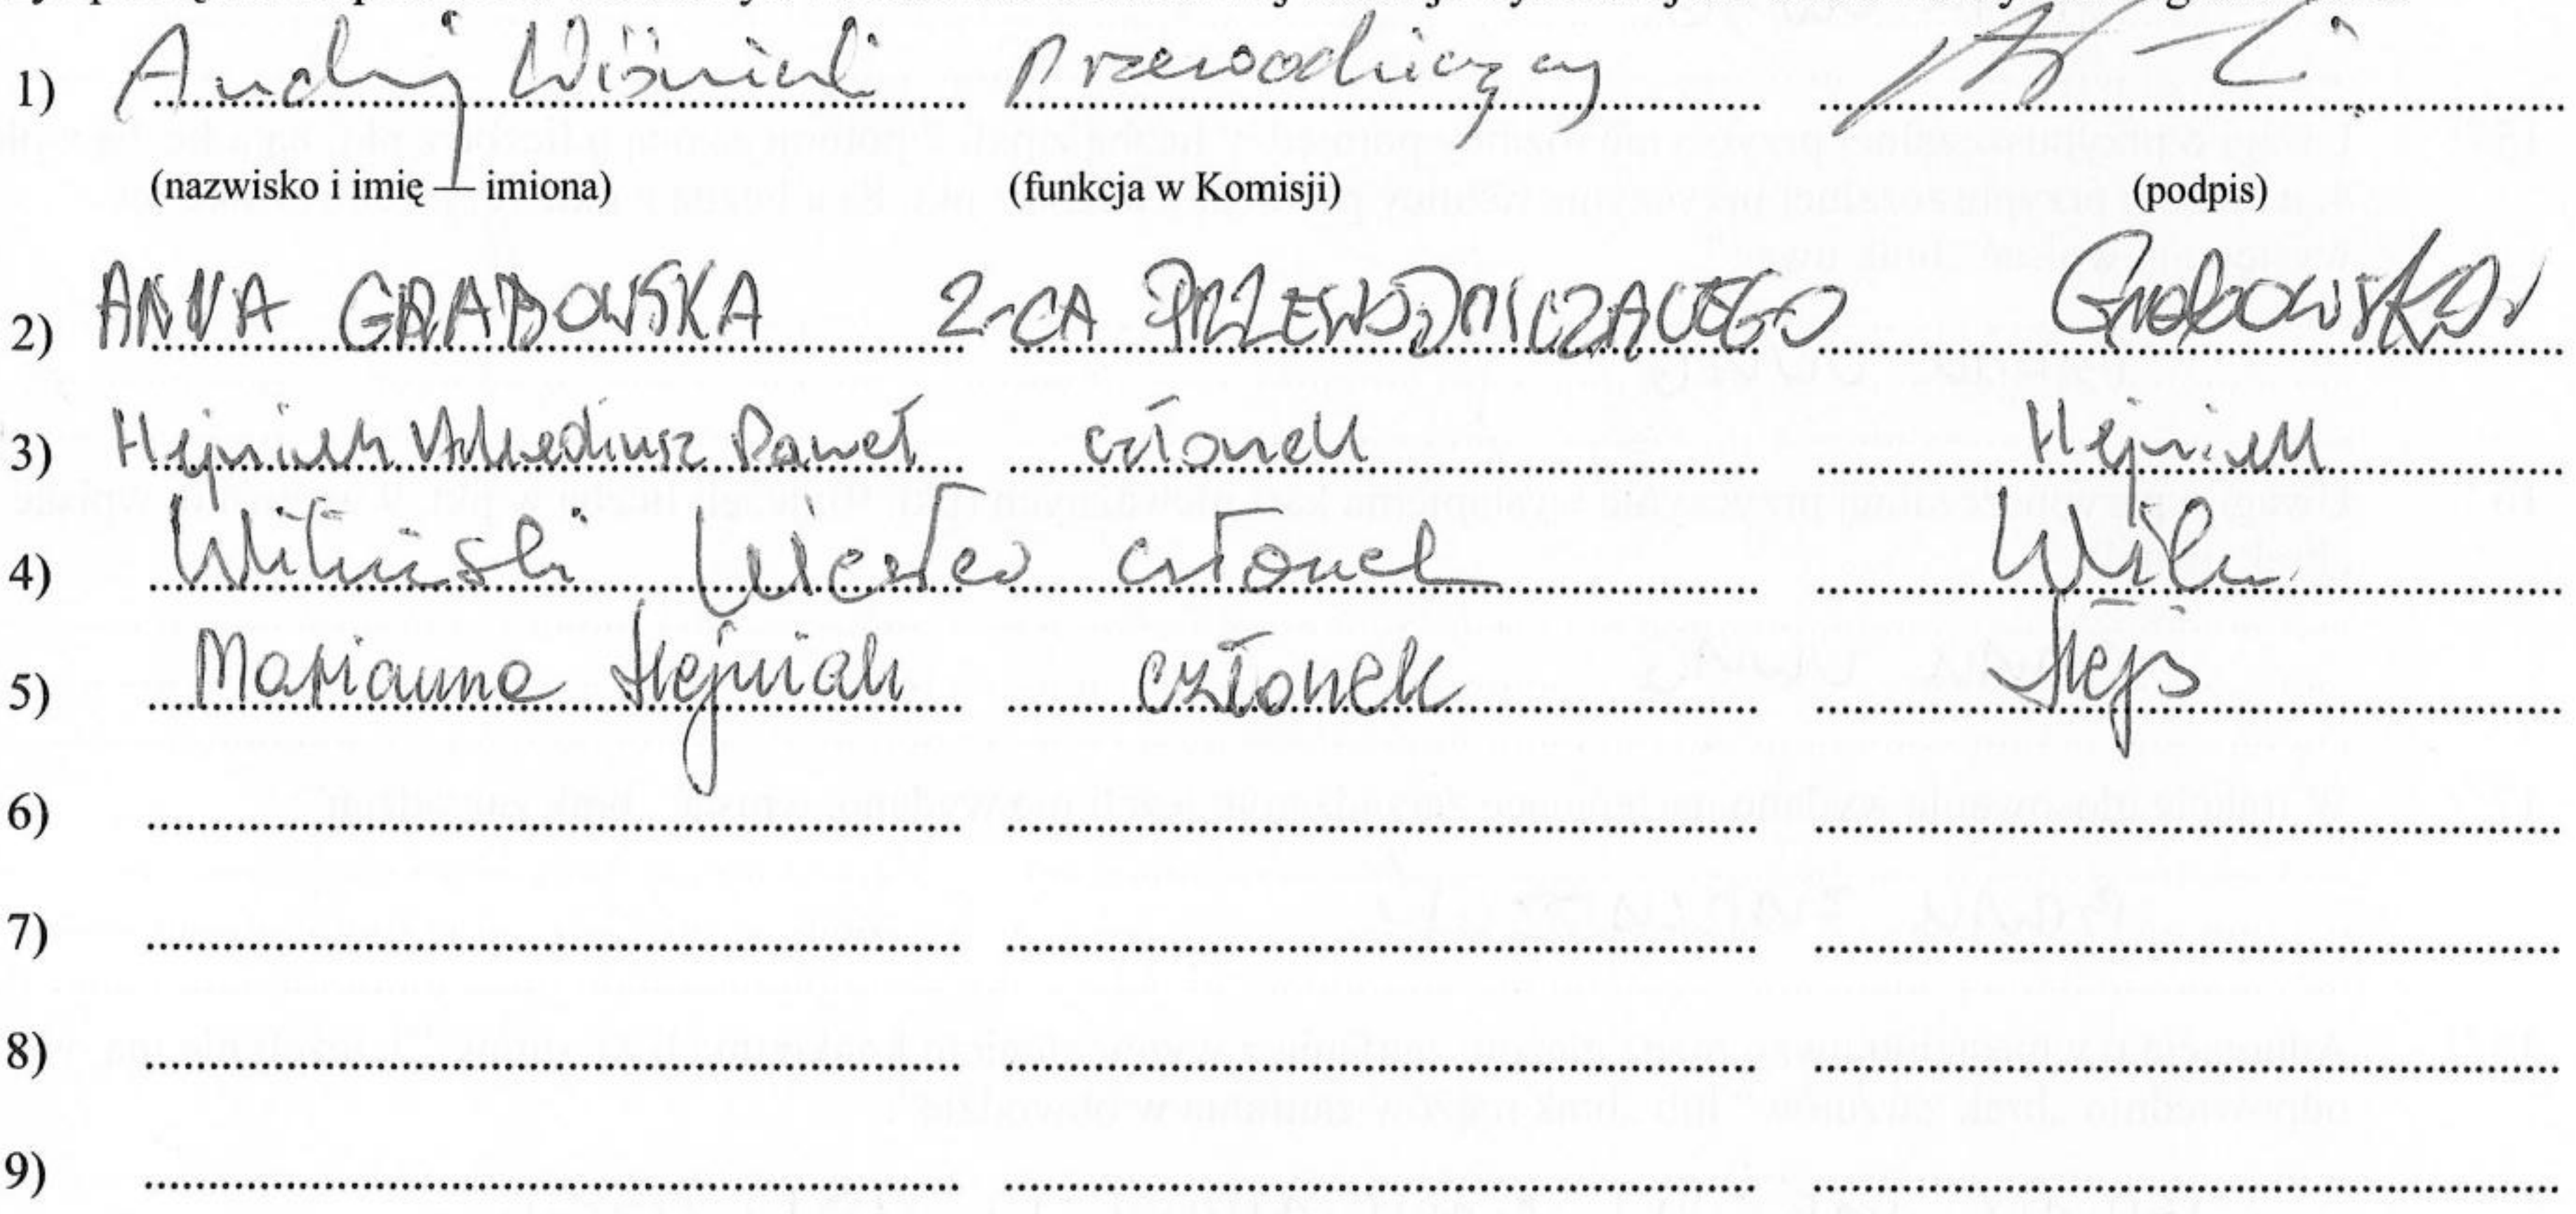 1) Andrzej Wiśniewski Przewodniczący
(nazwisko i imię — imiona) (funkcja w Komisji) (podpis)
2) ANNA GRABOWSKA Z-CA PRZEWODNICZĄCEGO Grabowska
3) Hejniak Arkadiusz Paweł członek Hejniak
4) Wiesław członek
5) Marianna Hejniak członek
6)
7)
8)
9)